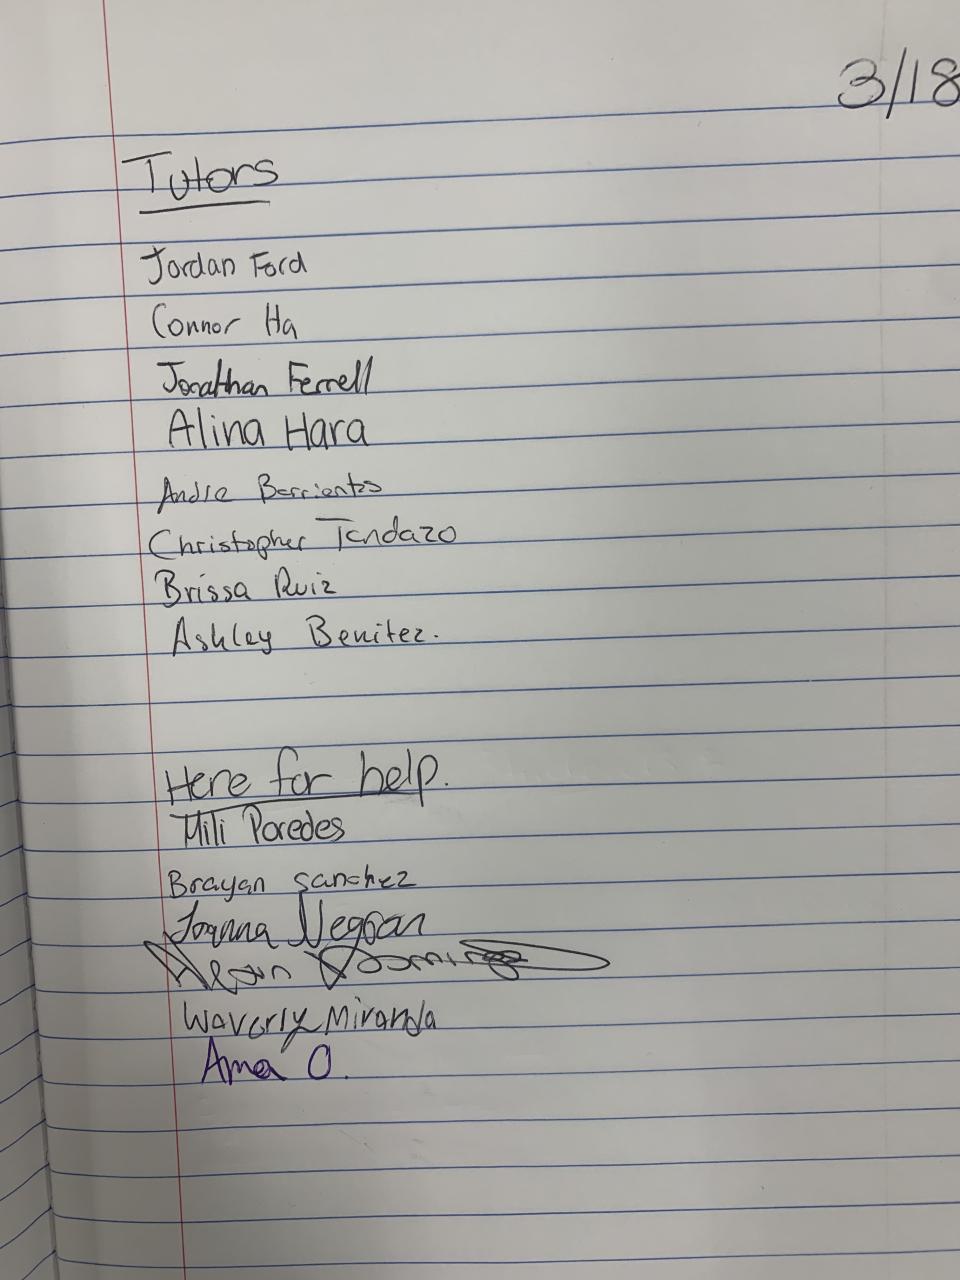 3/18
Tutors
Jordan Ford
Connor Ha
Jonathan Ferrell
Alina Hara
Andre Barrientos
Christopher Tandazo
Brissa Ruiz
Ashley Benitez.
Here for help.
Mili Paredes
Brayan Sanchez
Joanna Negoan
Waverly Miranda
Ama O.